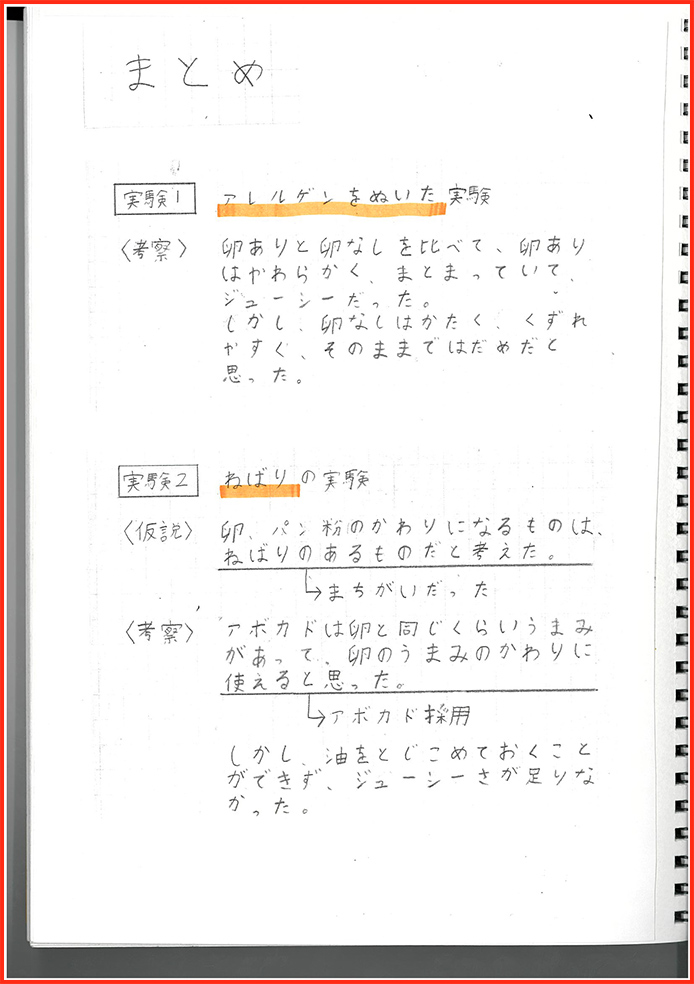 まとめ
実験1 アレルゲンをぬいた実験
〈考察〉 卵ありと卵なしを比べて、卵あり
はやわらかく、まとまっていて、
ジューシーだった。
しかし、卵なしはかたく、くずれ
やすく、そのままではだめだと
思った。
実験2 ねばりの実験
〈仮説〉 卵、パン粉のかわりになるものは、
ねばりのあるものだと考えた。
→まちがいだった
〈考察〉 アボカドは卵と同じくらいうまみ
があって、卵のうまみのかわりに
使えると思った。
→アボカド採用
しかし、油をとじこめておくこと
ができず、ジューシーさが足りな
かった。